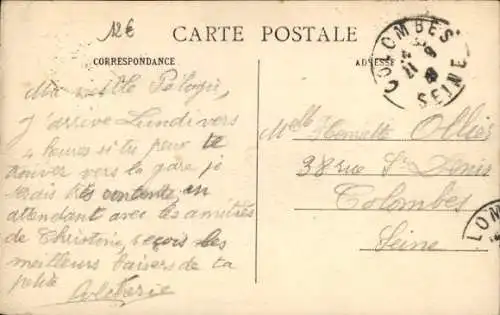 12€
CARTE POSTALE
CORRESPONDANCE
ADRESSE
COLOMBES
SEINE
Ma Pélagie,
J'arrive Lundi vers
4 heures si tu peux te
trouver vers la gare je
serais très contente en
attendant avec les amitiés
de Christine, reçois les
meilleurs baisers de ta
petite
Melle Henriette Ollier
38 rue St Denis
Colombes
Seine
LOM